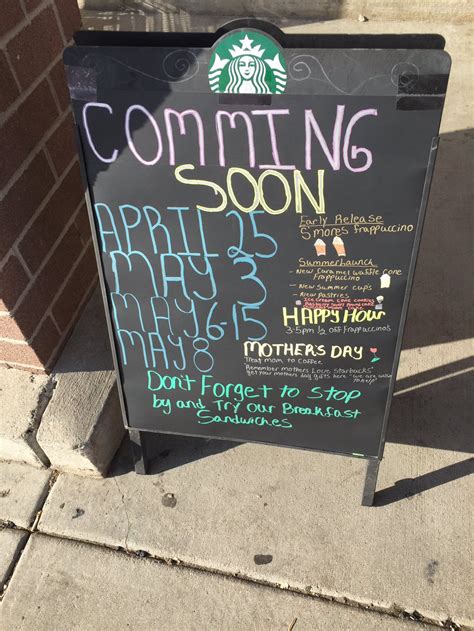 COMMING
SOON
APRIL 25
Early Release
S'mores Frappuccino
MAY 3
Summer Launch
- New Caramel Waffle Cone
Frappuccino
- New Summer Cups
- New Pastries
Ice Cream Cone Cookies
MAY 6-15
HAPPY HOUR
3-5pm ½ OFF Frappuccinos
MAY 8
MOTHER'S DAY
Treat mom to Coffee
Remember mothers Love Starbucks
get your mothers day gifts here "we are willing
to help"
Don't Forget to Stop
by and Try Our Breakfast
Sandwiches